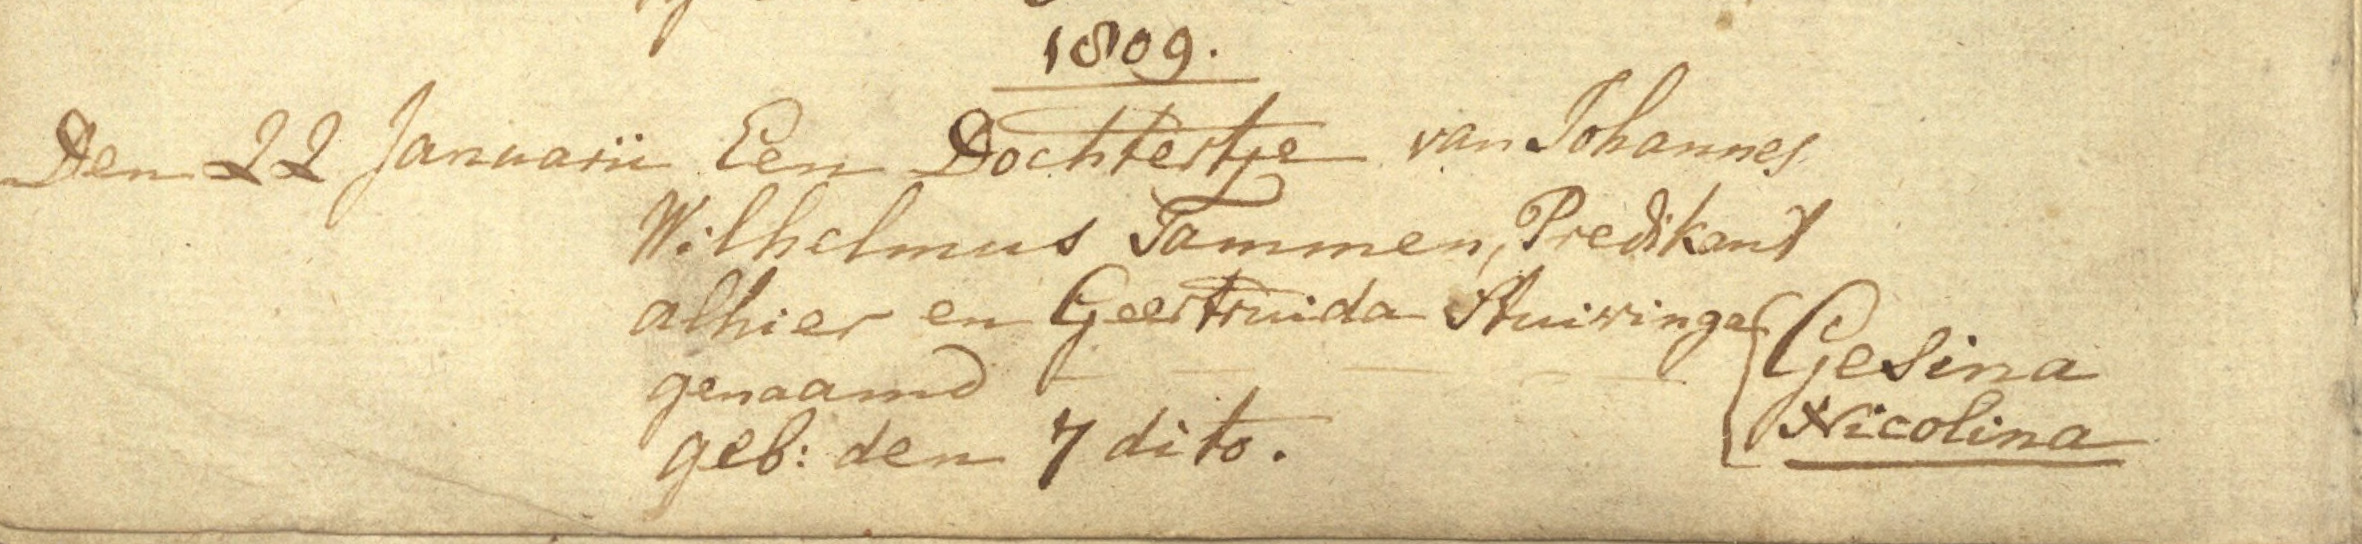 1809.
Den 22 Januarii Een Dochtertje van Johannes
Wilhelmus Tammen, Predikant
alhier en Geertruida Stuivinga
genaamd - - - - Gesina
Nicolina
geb: den 7 dito.